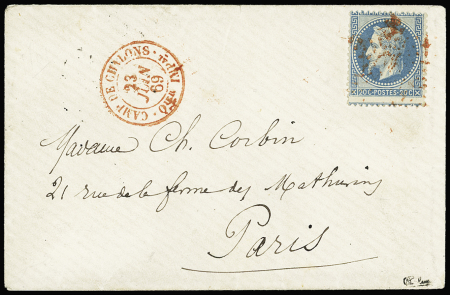 CAMP-DE CHALONS · Qer IMPal
23
JUIN
69
20C·POSTES·20C
Madame Ch. Corbin
21 rue de la ferme des Mathurins
Paris